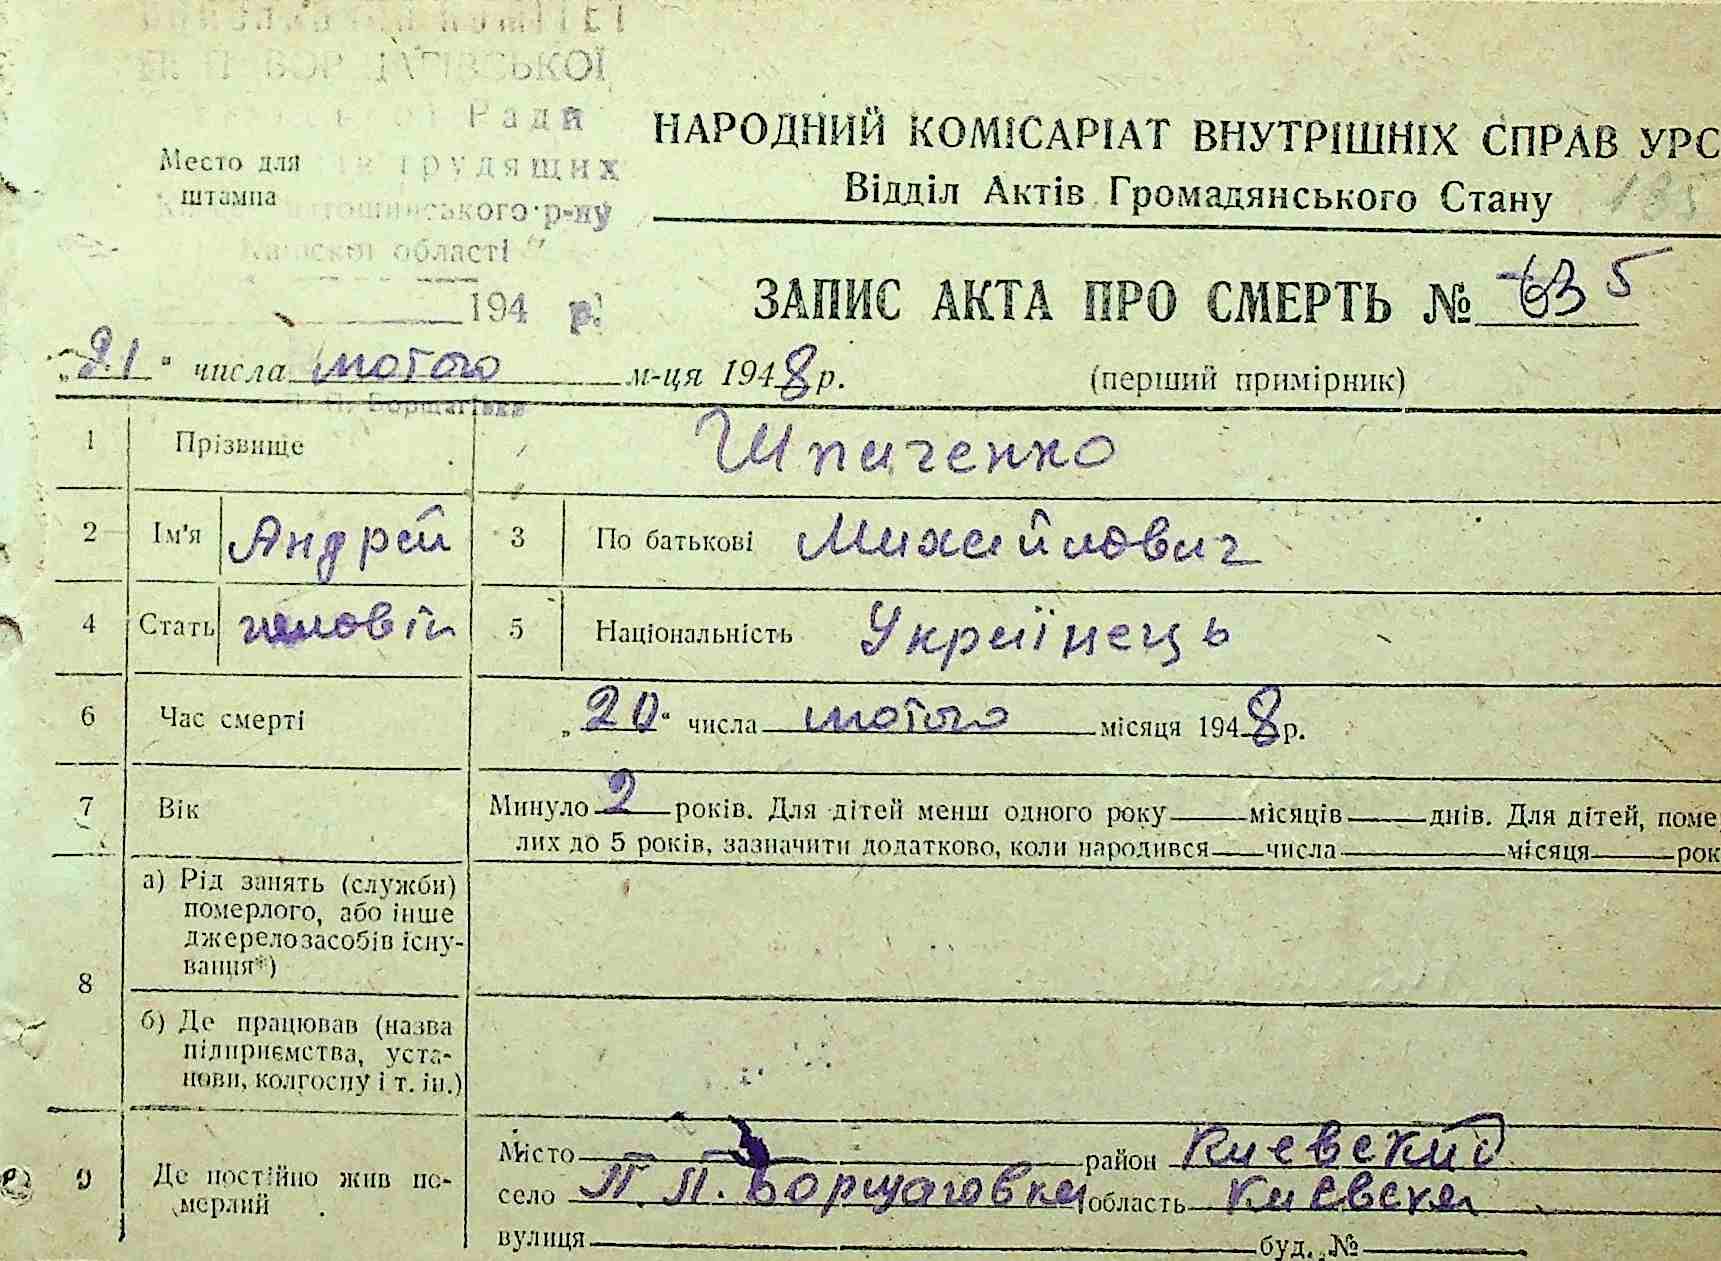 Ради
Место для трудящих
штампа р-ну
області
194 р.
НАРОДНИЙ КОМІСАРІАТ ВНУТРІШНІХ СПРАВ УРС
Відділ Актів Громадянського Стану 185
ЗАПИС АКТА ПРО СМЕРТЬ № 5
„21“ числа лютого м-ця 1948 р. (перший примірник)
П. Борщагівка
1 Прізвище Шпиченко
2 Ім'я Андрей 3 По батькові Михайлович
4 Стать чоловік 5 Національність Українець
6 Час смерті „20“ числа лютого місяця 1948 р.
7 Вік Минуло 2 років. Для дітей менш одного року місяців днів. Для дітей, поме
лих до 5 років, зазначити додатково, коли народився числа місяця рок
8 а) Рід занять (служби)
померлого, або інше
джерело засобів існу-
вання*)
б) Де працював (назва
підприємства, уста-
нови, колгоспу і т. ін.)
9 Де постійно жив по-
мерлий
Місто район Киевский
село П. П. Борщаговка область Киевская
вулиця буд. №